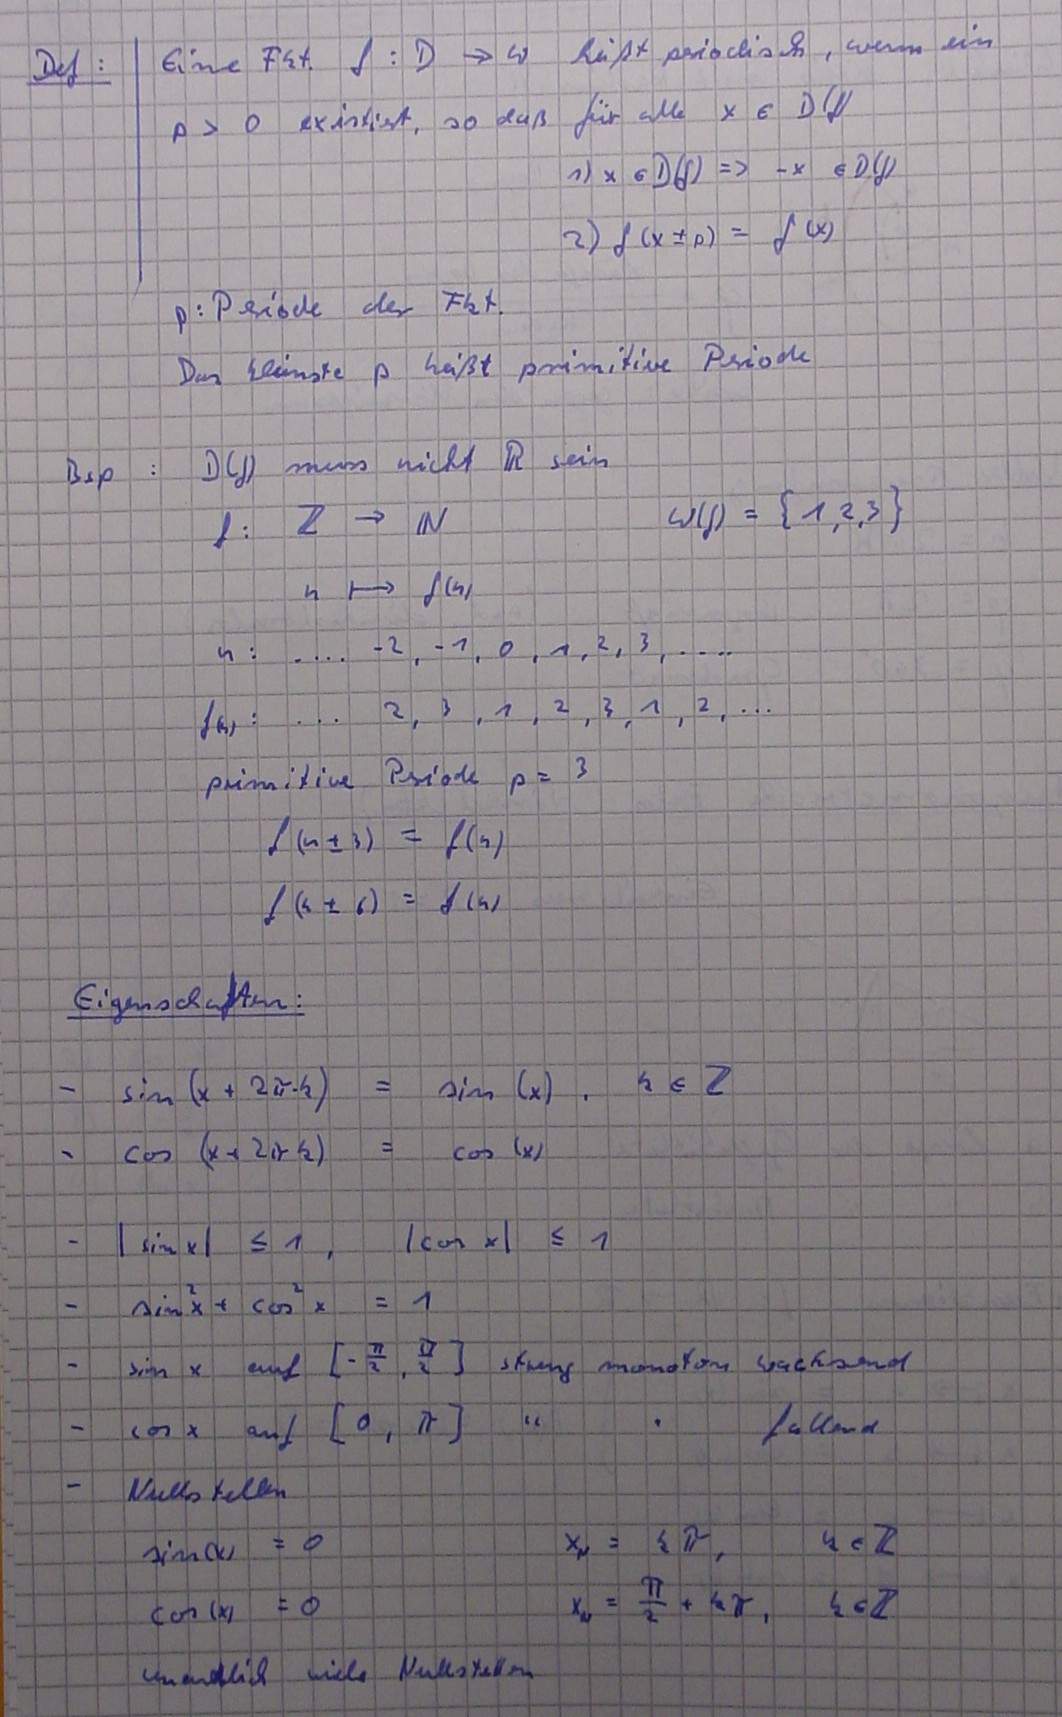 Def: Eine Fkt. f : D → W heißt periodisch, wenn ein
p > 0 existiert, so daß für alle x ∈ D(f)
1) x ∈ D(f) => -x ∈ D(f)
2) f(x ± p) = f(x)
p: Periode der Fkt.
Das kleinste p heißt primitive Periode
Bsp : D(f) muss nicht ℝ sein
f: ℤ → ℕ W(f) = {1,2,3}
n ↦ f(n)
n: .... -2, -1, 0, 1, 2, 3, .....
f(n): ... 2, 3, 1, 2, 3, 1, 2, ...
primitive Periode p = 3
f(n ± 3) = f(n)
f(n ± 6) = f(n)
Eigenschaften:
- sin(x + 2π·k) = sin(x), k ∈ ℤ
- cos(x + 2πk) = cos(x)
- |sin x| ≤ 1, |cos x| ≤ 1
- sin²x + cos²x = 1
- sin x auf [-π/2, π/2] streng monoton wachsend
- cos x auf [0, π] " " fallend
- Nullstellen
sin(x) = 0 x_N = kπ, k ∈ ℤ
cos(x) = 0 x_N = π/2 + kπ, k ∈ ℤ
unendlich viele Nullstellen